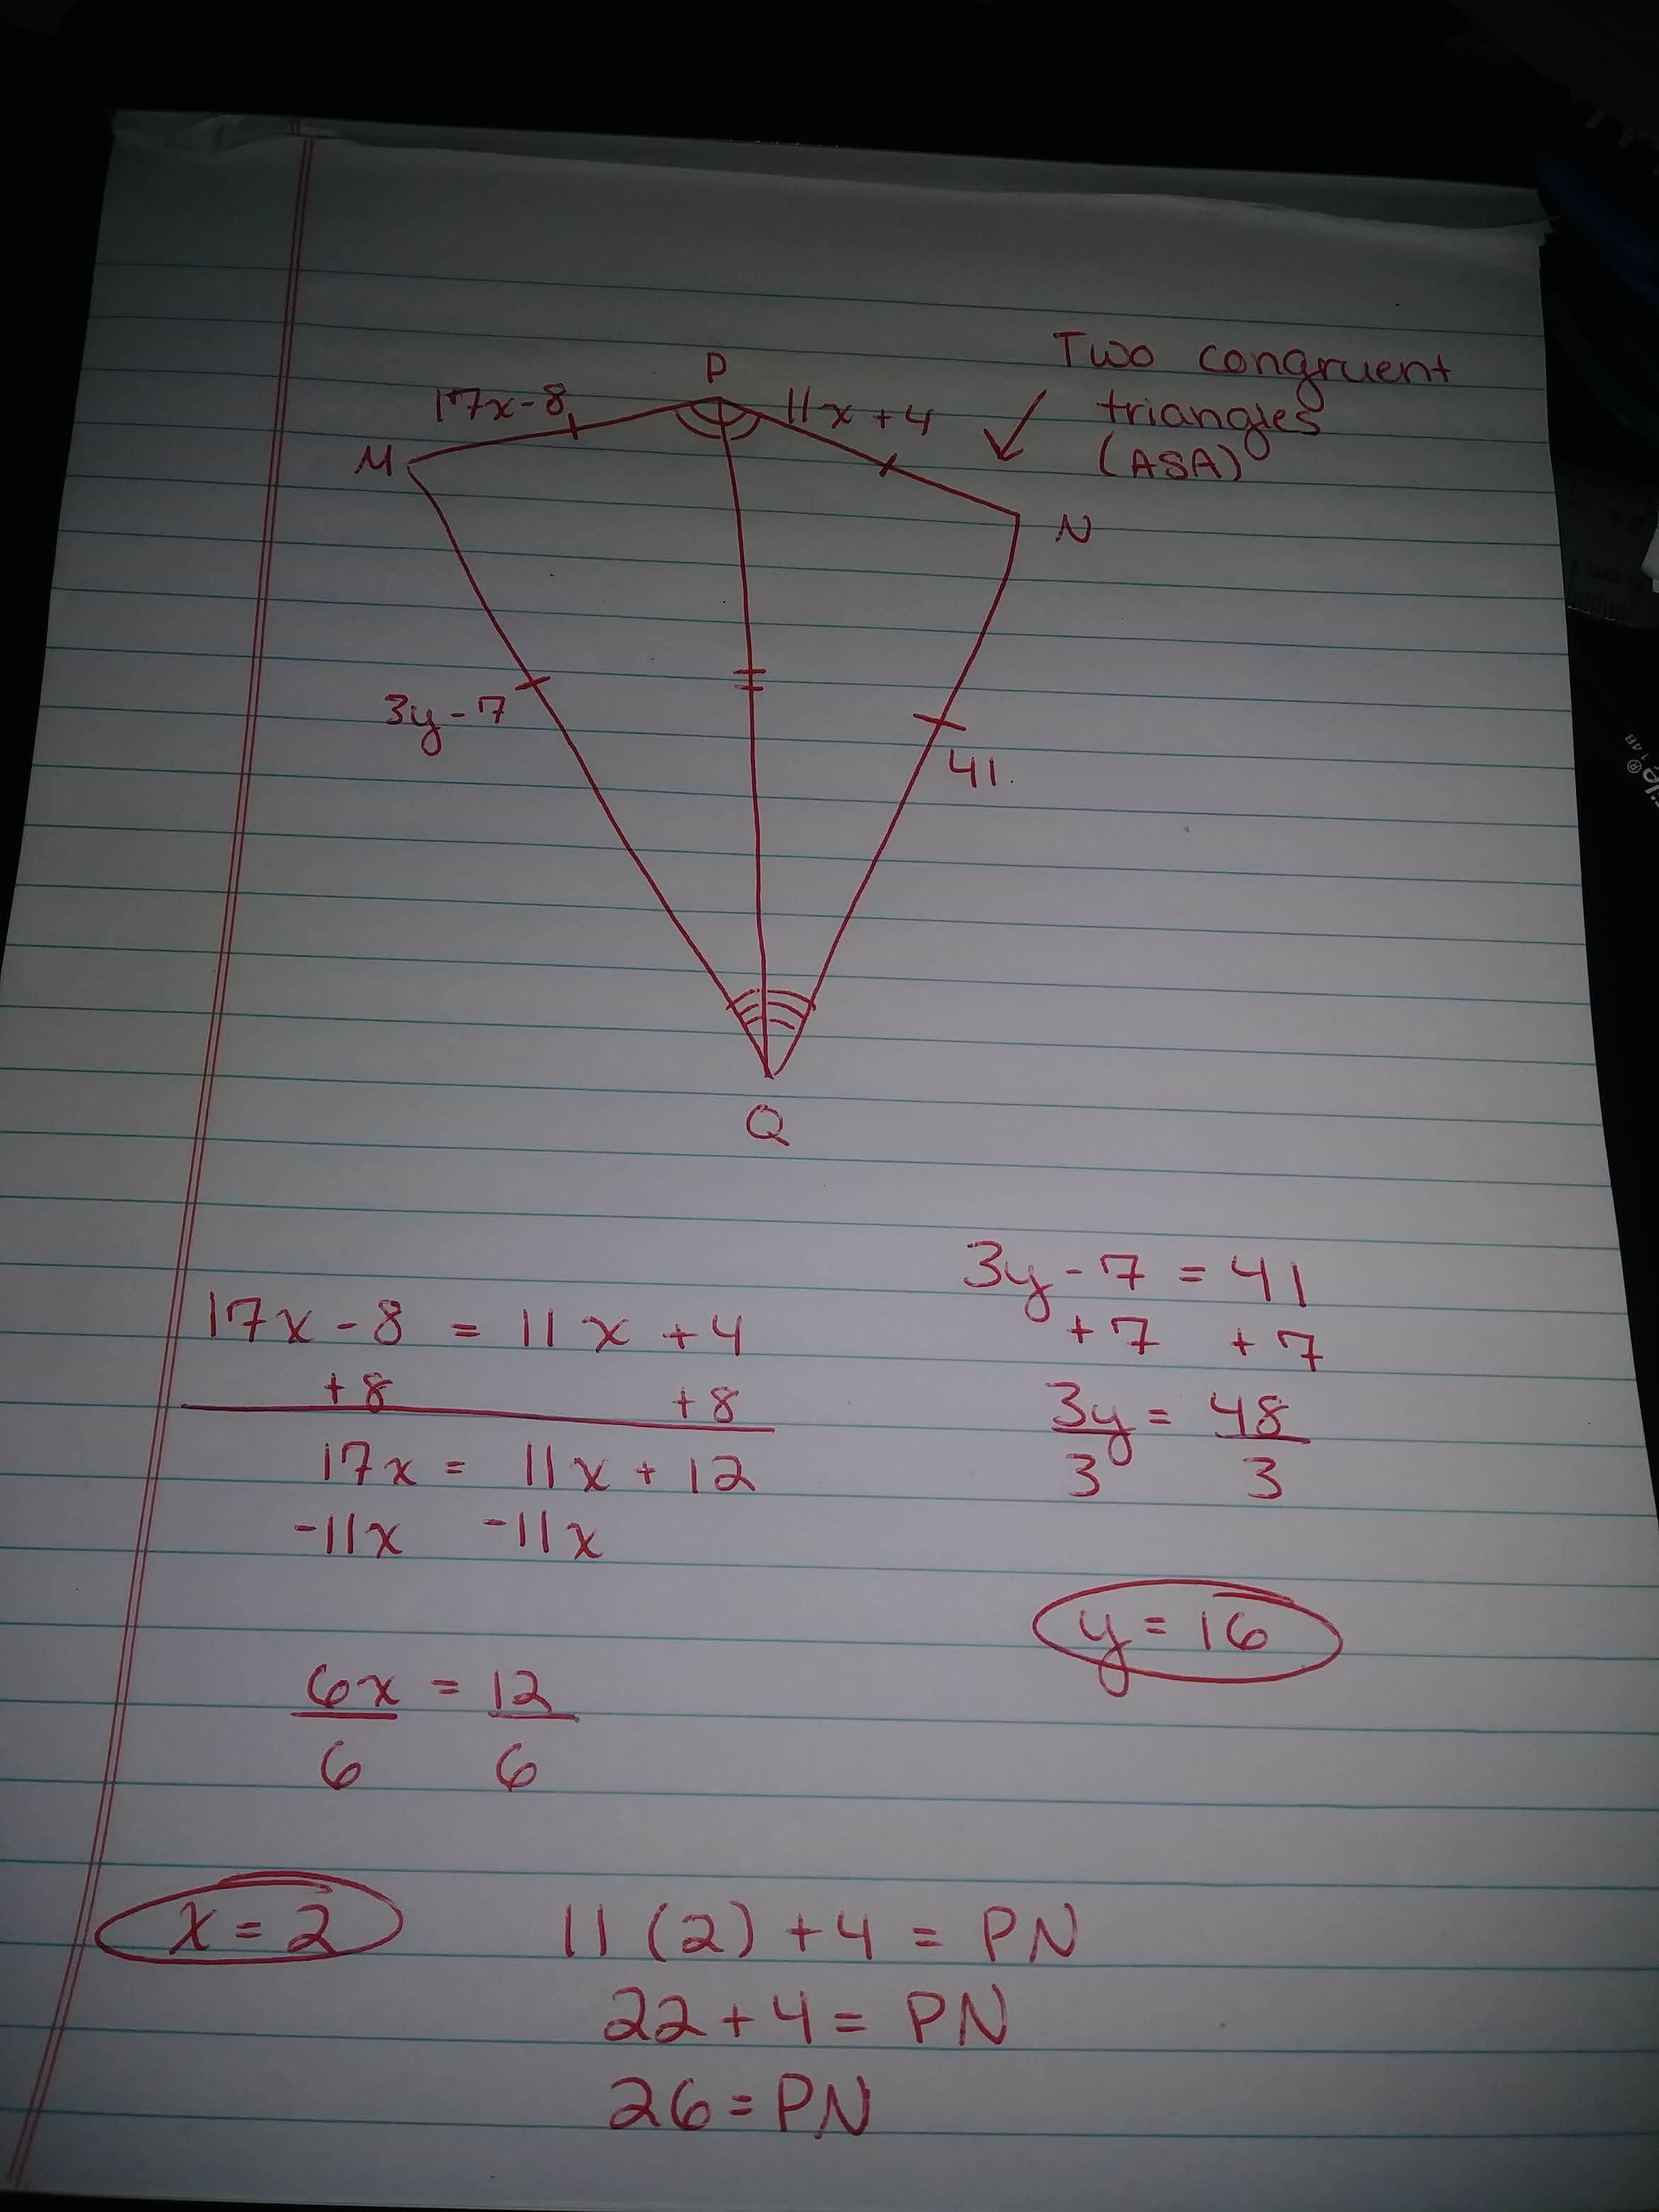 Two congruent
triangles
(ASA)
P
17x-8
11x+4
M
N
3y-7
41
Q
17x-8 = 11x+4
+8 +8
17x = 11x+12
-11x -11x
6x = 12
6 6
x=2
3y-7 = 41
+7 +7
3y = 48
3 3
y=16
11(2)+4 = PN
22+4 = PN
26=PN